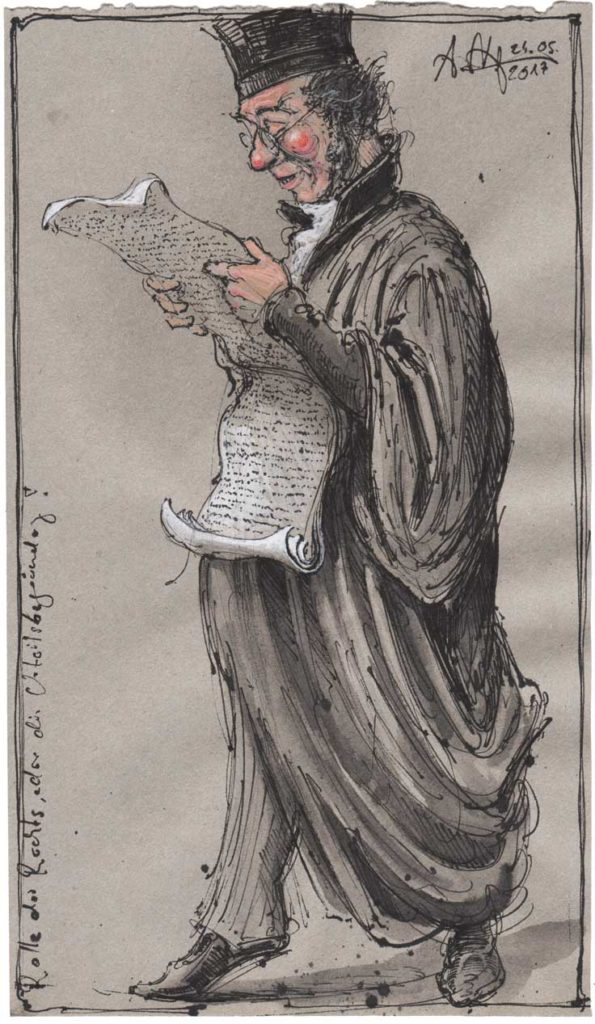 25.05.
2017
Rolle des Rechts, oder die Urteilsbegründung!